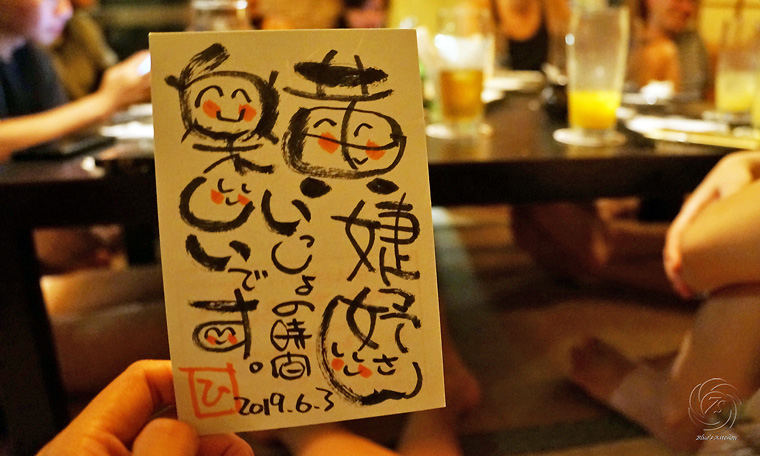 黄婕妤さん
いっしょの時間
楽しいです。
ひ
2019.6.3